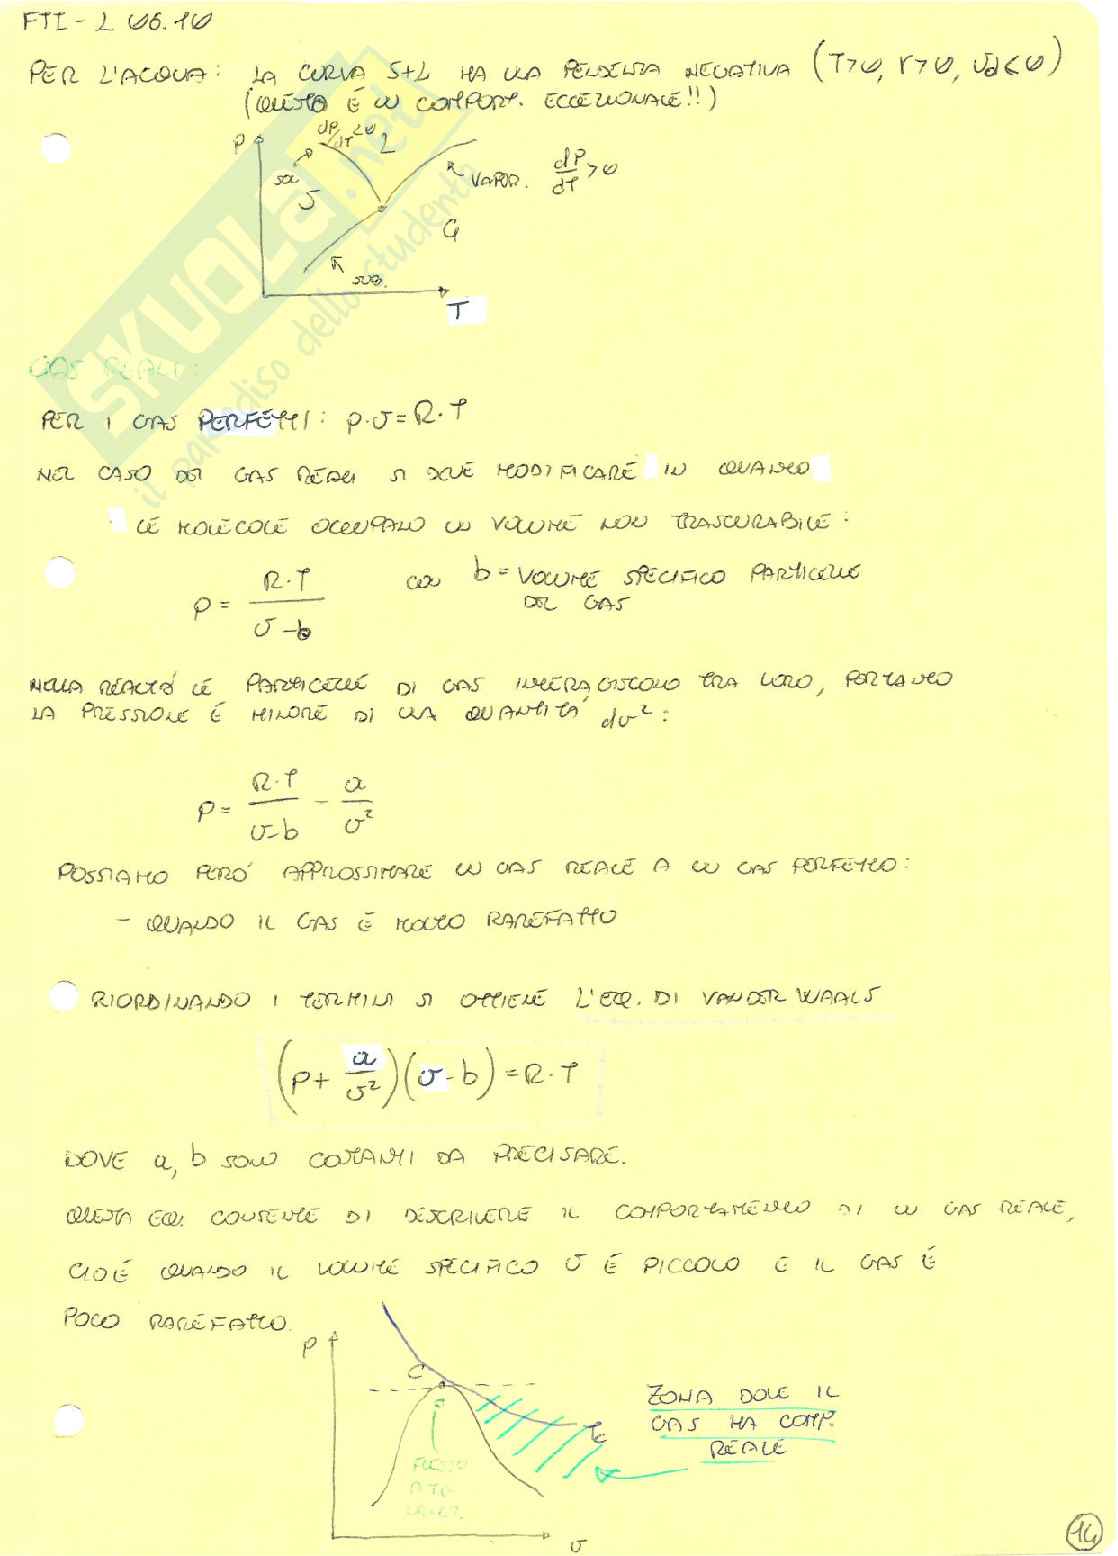 FTI - L 06.10
PER L'ACQUA: LA CURVA S+L HA UNA PENDENZA NEGATIVA (T>0, r>0, vd<0)
(QUESTO È UN COMPORT. ECCEZIONALE!!)
P dP/dT<0 L
SOL
S VAPOR. dP/dT>0
G
SUB.
T
SKUOLA.net
il paradiso dello studente
GAS REALI:
PER I GAS PERFETTI: p·v=R·T
NEL CASO DEI GAS REALI SI DEVE MODIFICARE IN QUANTO
LE MOLECOLE OCCUPANO UN VOLUME NON TRASCURABILE:
p = R·T / v-b CON b = VOLUME SPECIFICO PARTICELLE
DEL GAS
NELLA REALTÀ LE PARTICELLE DI GAS INTERAGISCONO TRA LORO, PERTANTO
LA PRESSIONE È MINORE DI UNA QUANTITÀ dv²:
p = R·T / v-b - a / v²
POSSIAMO PERÒ APPROSSIMARE UN GAS REALE A UN GAS PERFETTO:
- QUANDO IL GAS È MOLTO RAREFATTO
RIORDINANDO I TERMINI SI OTTIENE L'EQ. DI VAN DER WAALS
(p + a/v²)(v-b) = R·T
DOVE a, b SONO COSTANTI DA PRECISARE.
QUESTA EQ. CONSENTE DI DESCRIVERE IL COMPORTAMENTO DI UN GAS REALE,
CIOÈ QUANDO IL VOLUME SPECIFICO v È PICCOLO E IL GAS È
POCO RAREFATTO.
P
C
ZONA DOVE IL
Tc GAS HA COMP.
REALE
FLESSO
A TG
v
14